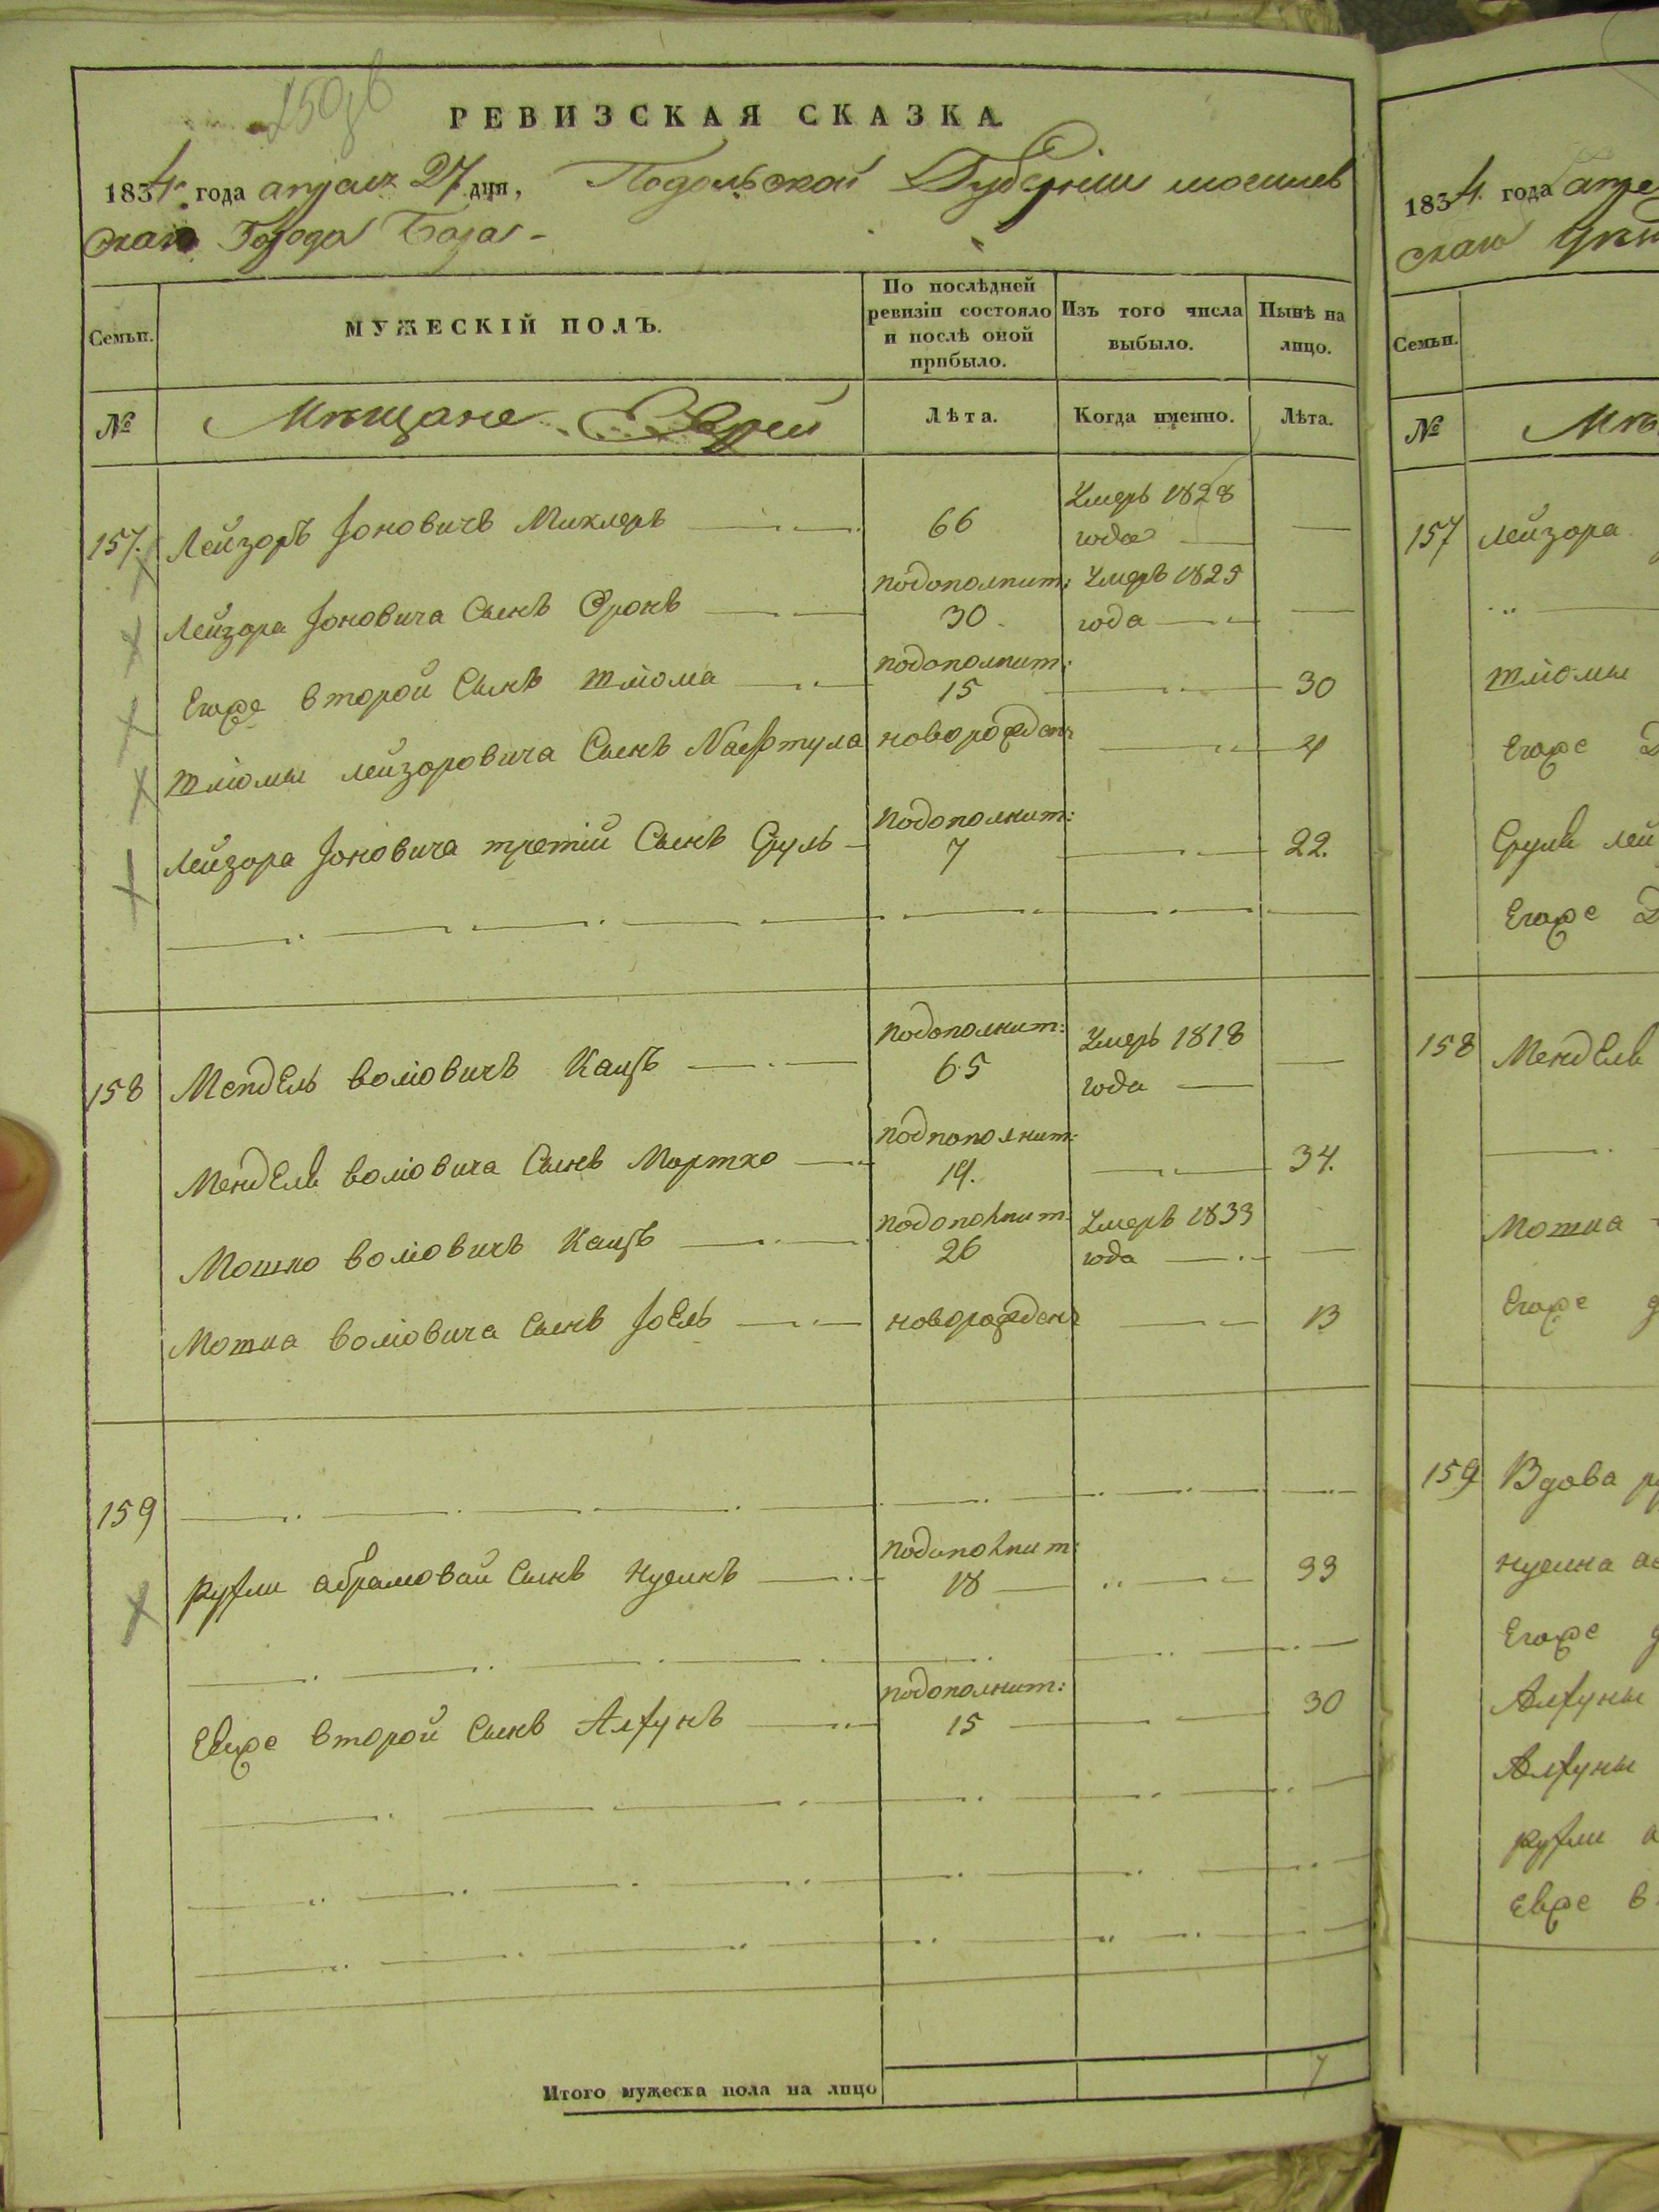 РЕВИЗСКАЯ СКАЗКА
1834 года апреля 27 дня, Подольской Губернии могилев
скаго Города Бара
Семьи. МУЖЕСКІЙ ПОЛЪ. По послѣдней ревизіи состояло и послѣ оной прибыло. Изъ того числа выбыло. Нынѣ на лицо.
№ Мѣщане Евреи Лѣта. Когда именно. Лѣта.
157. Лейзоръ Іоновичъ Миклеръ 66 Умеръ 1828 года
Лейзора Іоновича Сынъ Оронъ подополнит: 30 Умеръ 1825 года
Егоже второй Сынъ Шліома подополнит: 15 30
Шліомы лейзоровича Сынъ Нафтула новорожденъ 4
Лейзора Іоновича третій Сынъ Сруль подополнит: 7 22.
158 Мендель воліовичъ Кацъ подополнит: 65 Умеръ 1818 года
Менделя воліовича Сынъ Мортко подпополнит: 19. 34.
Мошко воліовичъ Кацъ подополнит 26 Умеръ 1833 года
Мошка воліовича Сынъ Іоель новорожденъ 13
159
рухли абрамовой Сынъ Нусинъ подополнит: 18 33
Евоже второй Сынъ Алхунъ подополнит: 15 30
Итого мужеска пола на лицо 7
1834 года апре
скаго
Семьи.
№ Мѣ
157 Лейзора
Шліомы
Егоже
Сруля лей
Егоже
158 Менделя
Мошка
Егоже
159 Вдова
нусина
Егоже
Алхуны
Алхуны
рухли а
Евже в